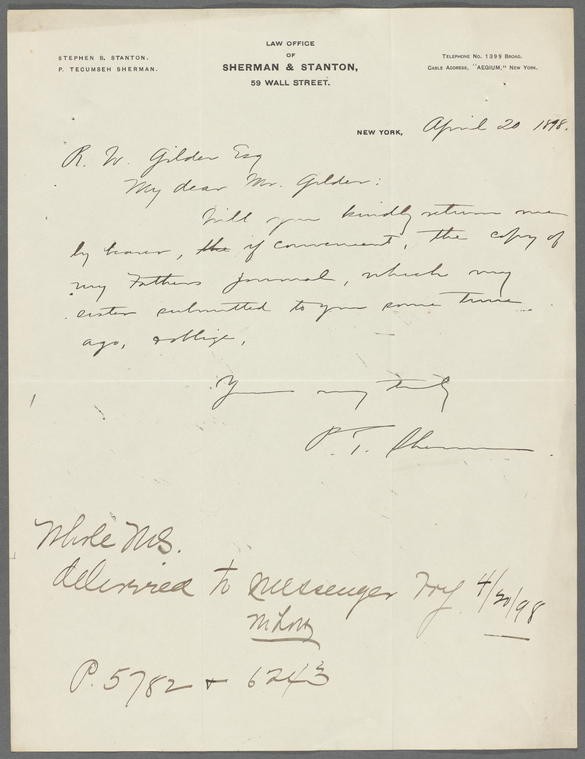 LAW OFFICE
OF
SHERMAN & STANTON,
59 WALL STREET.
STEPHEN B. STANTON.
P. TECUMSEH SHERMAN.
TELEPHONE NO. 1399 BROAD.
CABLE ADDRESS, "AEGIUM," NEW YORK.
NEW YORK, April 20 1898.
R. W. Gilder Esq
My dear Mr. Gilder:
Will you kindly return me
by bearer, the if convenient, the copy of
my Fathers journal, which my
sister submitted to you some time
ago, & oblige,
Yours very truly
P. T. Sherman
Whole MS.
delivered to messenger boy 4/20/98
P. 5782 + 6243